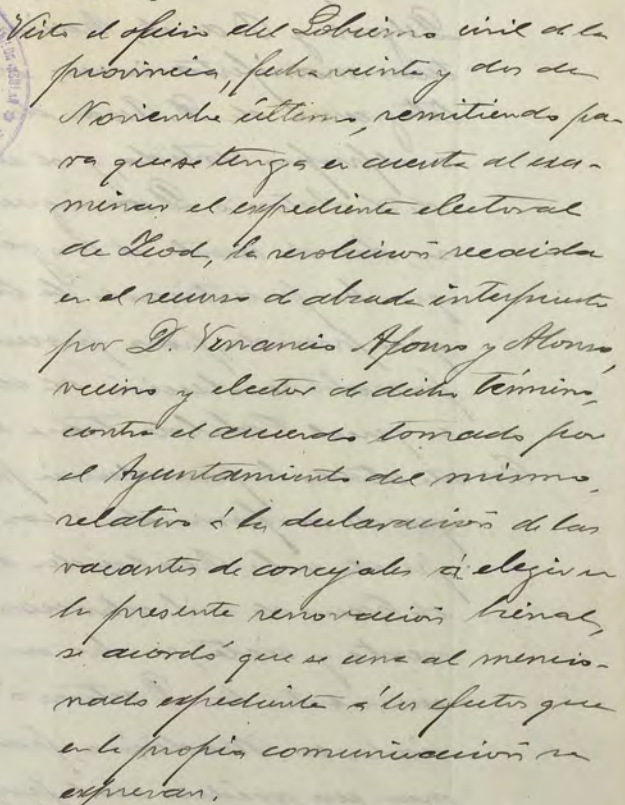 Visto el oficio del Gobierno civil de la
provincia, fecha veinte y dos de
Noviembre último, remitiendo pa-
ra que se tenga en cuenta al exa-
minar el expediente electoral
de Icod, la resolución recaida
en el recurso de alzada interpuesto
por D. Venancio Afonso y Alonso,
vecino y elector de dicho término,
contra el acuerdo tomado por
el Ayuntamiento del mismo,
relativo á la declaración de las
vacantes de concejales á elegir en
la presente renovación bienal,
se acordó que se una al mencio-
nado expediente á los efectos que
en la propia comunicación se
expresan.